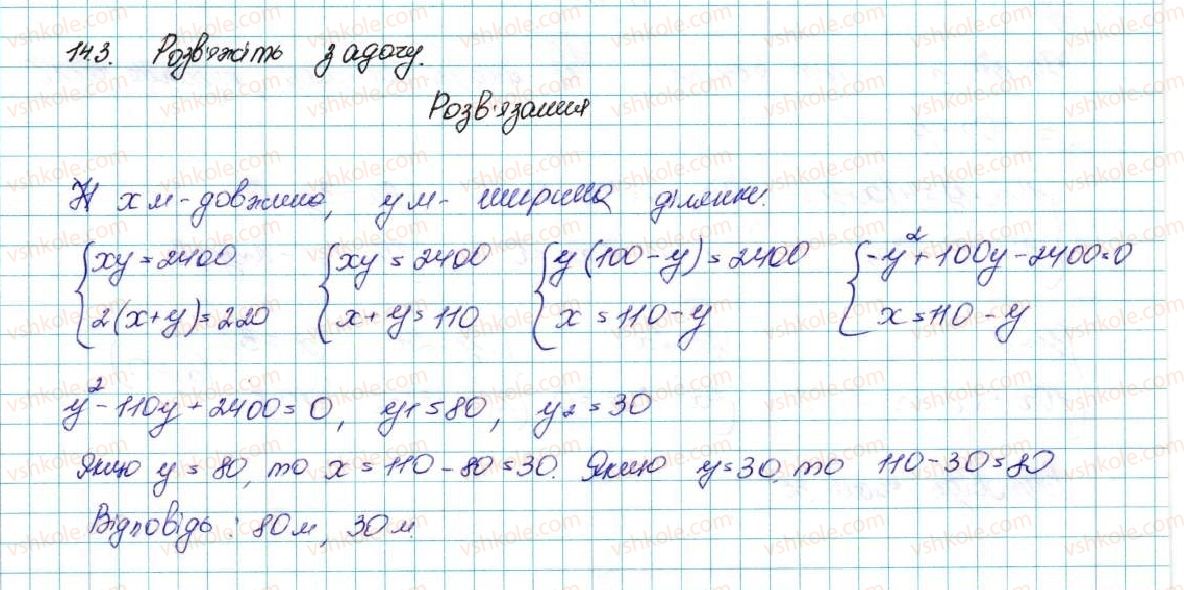 14.3. Розв'яжіть задачу.
Розв'язання
Н х м - довжина, у м - ширина ділянки.
{ xy = 2400 { xy = 2400 { y(100 - y) = 2400 { -y² + 100y - 2400 = 0
{ 2(x + y) = 220 { x + y = 110 { x = 110 - y { x = 110 - y
y² - 110y + 2400 = 0, y₁ = 80, y₂ = 30
Якщо y = 80, то x = 110 - 80 = 30. Якщо y = 30, то 110 - 30 = 80
Відповідь: 80 м, 30 м.
vshkole.com